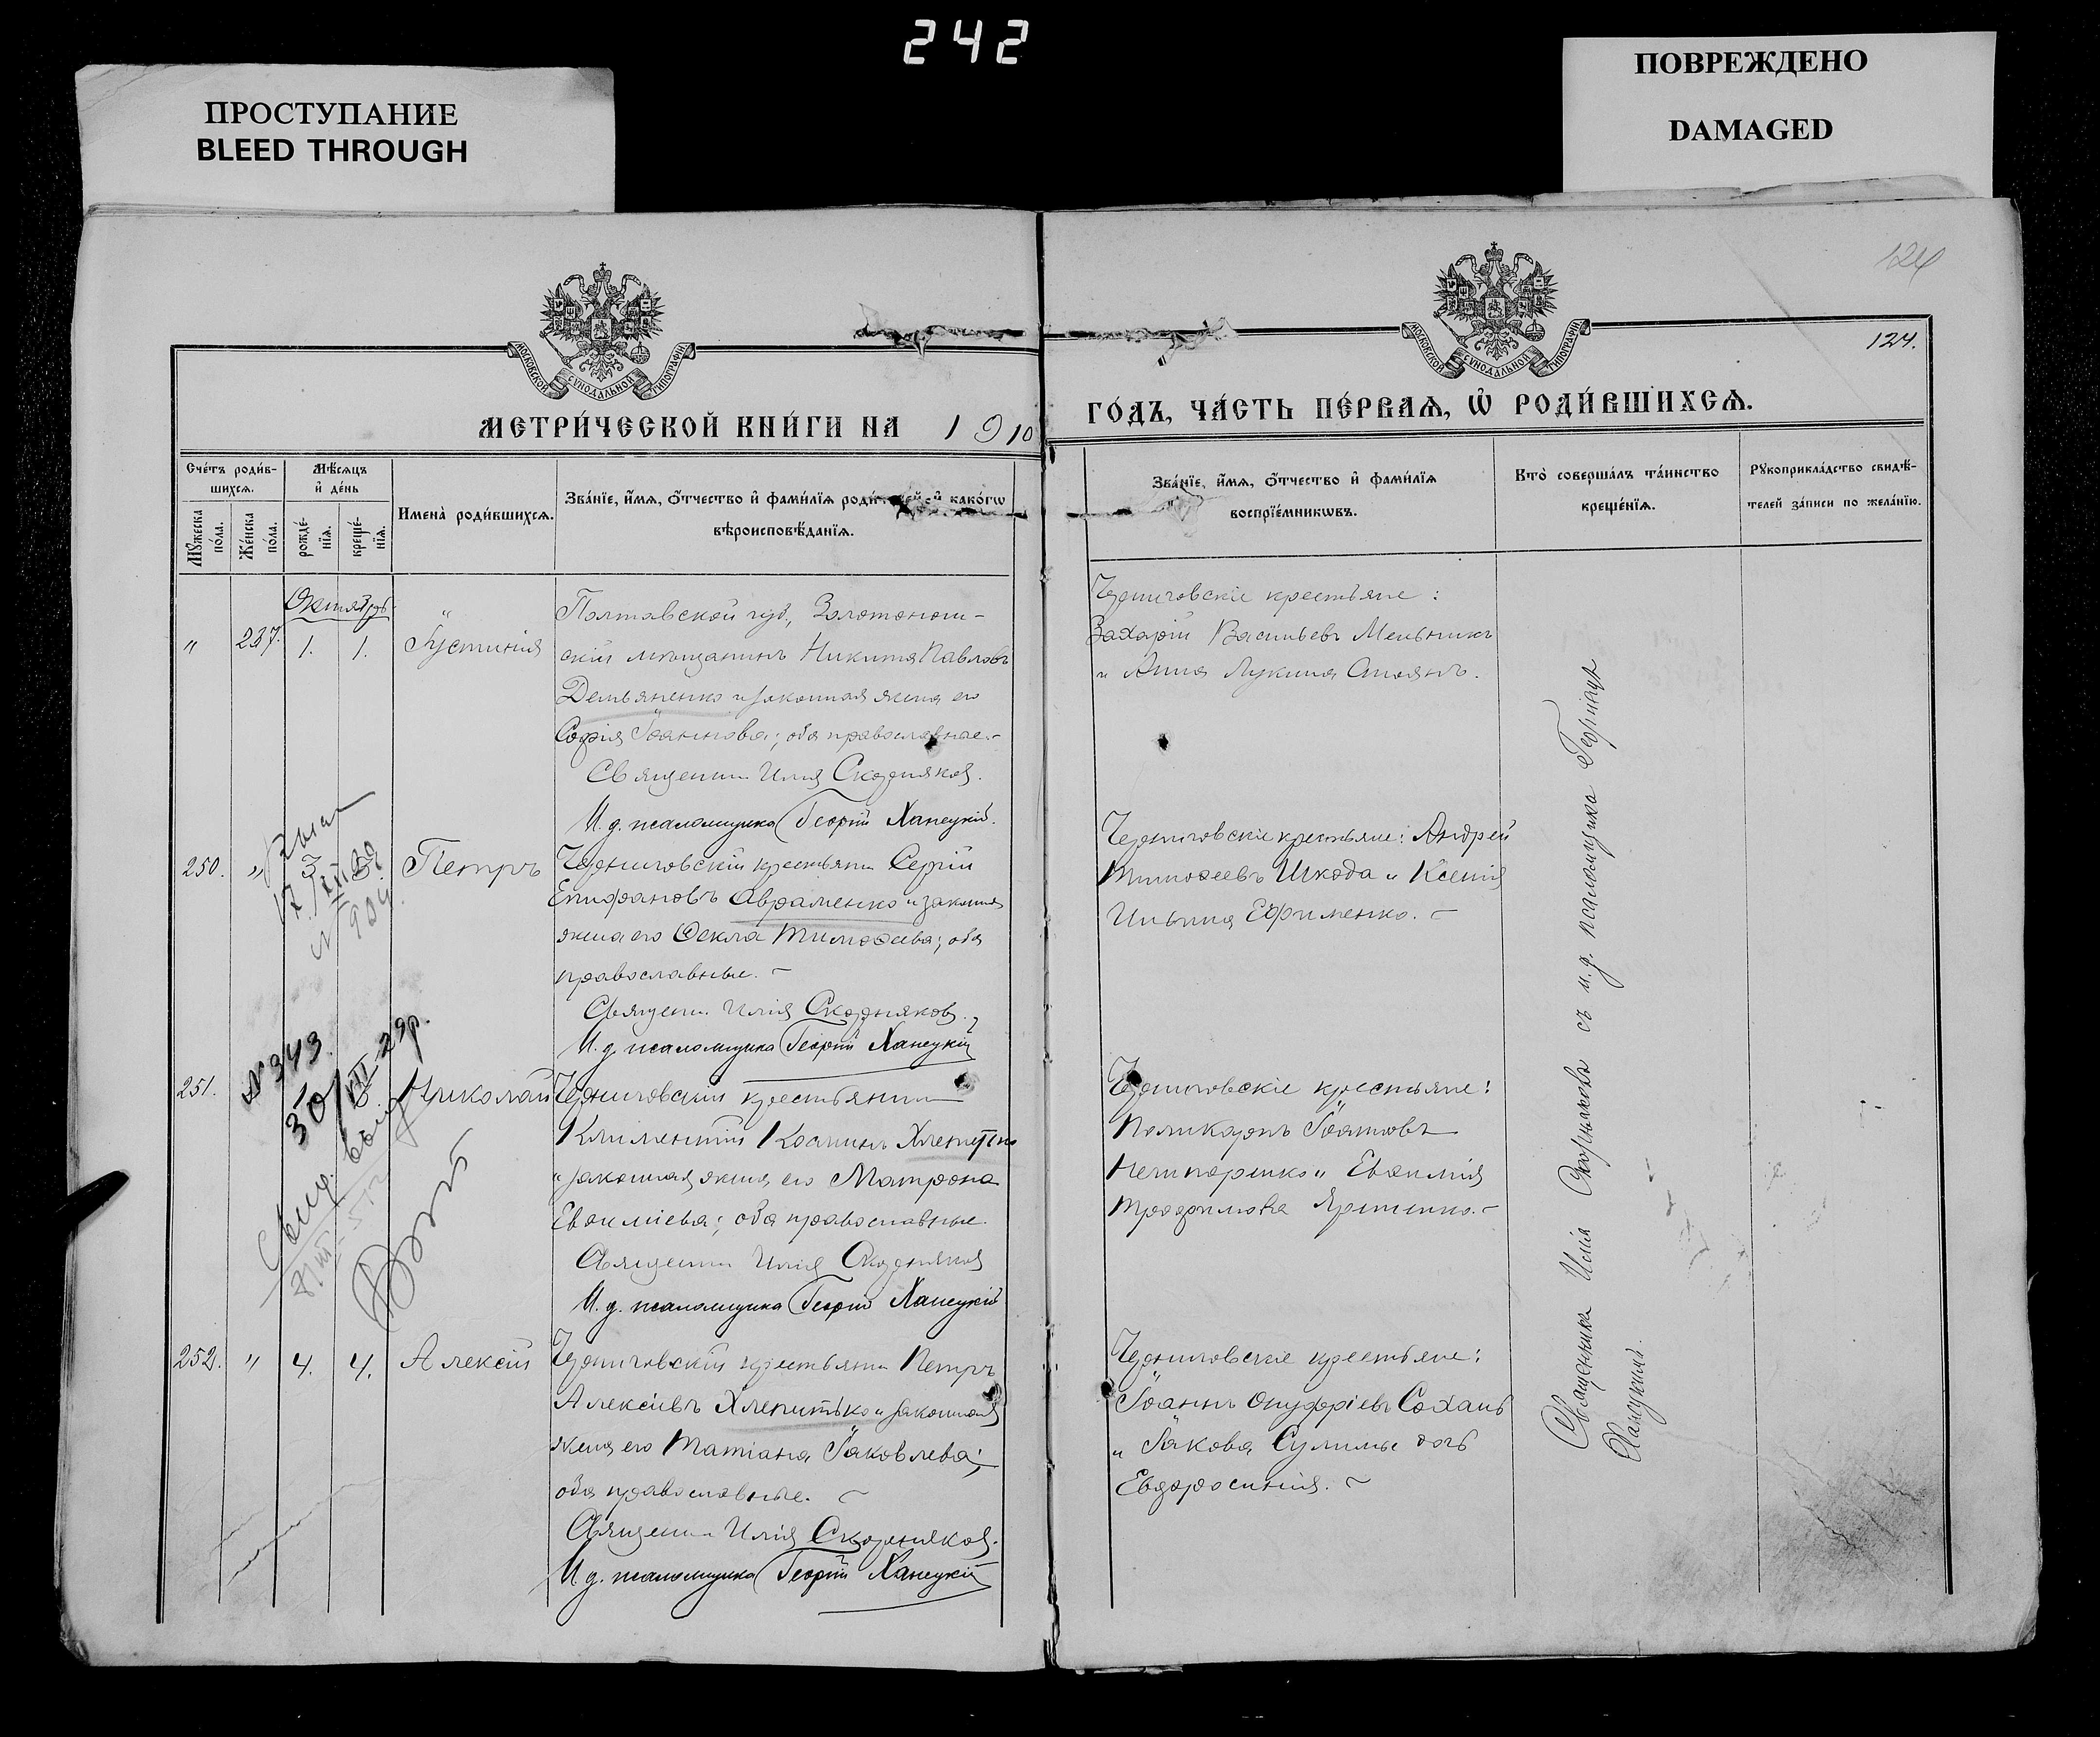 242
ПРОСТУПАНИЕ
BLEED THROUGH
ПОВРЕЖДЕНО
DAMAGED
124
124.
МОСКОВСКОЙ СѴНОДАЛЬНОЙ ТИПОГРАФІИ
МОСКОВСКОЙ СѴНОДАЛЬНОЙ ТИПОГРАФІИ
МЕТРИ́ЧЕСКОЙ КНИ́ГИ НА 1910
ГО́ДЪ, ЧА́СТЬ ПЕ́РВАѦ, Ѡ҆ РОДИ́ВШИХСѦ.
Сче́тъ роди́в-
шихсѧ.
Мꙋжеска
по́ла.
Же́нска
по́ла.
Мѣ́сѧцъ
и҆ де́нь
рожде́-
нїѧ.
креще́-
нїѧ.
Имена̀ роди́вшихсѧ.
Зва́нїе, и҆́мѧ, ѻ҆́тчество и҆ фами́лїѧ роди́телей, и҆ како́гѡ
вѣроисповѣ́данїѧ.
Зва́нїе, и҆́мѧ, ѻ҆́тчество и҆ фами́лїѧ
воспрїе́мникѡвъ.
Кто̀ соверша́лъ та́инство
креще́нїѧ.
Рꙋкоприкла́дство свидѣ́-
телей за́писи по жела́нїю.
Октябрь
" 237. 1. 1. Іустинія
Полтавской губ., Золотонош-
скій мѣщанинъ Никита Павловъ
Демьяненко и законная жена его
Софія Іоаннова; оба православные.
Священ. Илія Скорняков.
И. д. псаломщика Георгій Ханецкій.
Черниговскіе крестьяне:
Захарій Васильевъ Мельникъ
и Анна Лукина
250. " 3 Петръ
Черниговскій крестьянин Сергій
Епифановъ Авраменко и законная
жена его Ѳекла Тимоѳеева; оба
православные.
Священ. Илія Скорняков.
И. д. псаломщика Георгій Ханецкій
Черниговскіе крестьяне: Андрей
Тимоѳеевъ Шкода и Ксенія
Ильина Ефименко.
N 904.
№ 343
30/VII-29р.
251. Николай
Черниговскій крестьянин
Климентій Косминъ Хлепитько
и законная жена его Матрона
Евѳиміева; оба православные.
Священ. Илія Скорняков
И. д. псаломщика Георгій Ханецкій
Черниговскіе крестьяне:
Поликарпъ Іоанновъ
Нечипоренко и Евѳимія
Трофимова Яременко.
252. " 4. 4. Алексій
Черниговскій крестьянин Петръ
Алексіевъ Хлепитько и законная
жена его Татіана Іаковлева;
оба православные.
Священ. Илія Скорняков.
И. д. псаломщика Георгій Ханецкій
Черниговскіе крестьяне:
Іоаннъ Онуфріевъ Сохань
и Іакова Сулимы дочь
Евфросинія.
Священника Илія Скорнякова съ и. д. псаломщика Георгіемъ
Ханецкимъ.